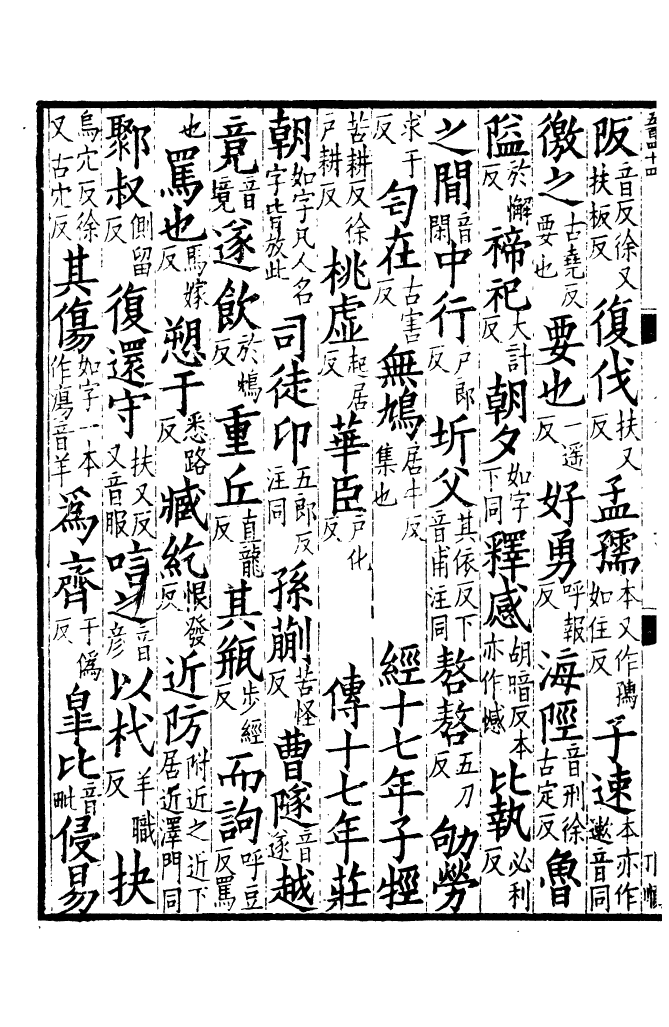 阪音反徐又扶板反復伐扶又反孟孺本又作𡦗如住反子速本亦作遬音同
徼之古堯反要也要也一遥反好勇呼報反海陘音刑徐古定反魯
隘於懈反禘祀大計反朝夕如字下同釋感胡暗反本亦作憾比執必利反
之間音閑中行户郎反圻父其依反下音甫注同嗸嗸五刀反劬勞
求于反匄在古害反無鳩居牛反集也經十七年子牼
苦耕反徐户耕反桃虛起居反華臣户化反傳十七年莊
朝如字凡人名字皆放此司徒印五郎反注同孫蒯苦怪反曹隧音遂越
竟音境遂飲於鴆反重丘直龍反其瓶步經反而訽呼豆反罵
也罵也馬嫁反愬于悉路反臧紇恨發反近防附近之近下居近澤門同
郰叔側留反復還守扶又反又音服唁之音彦以杙羊職反抉
烏穴反徐又古穴反其傷如字一本作瘍音羊爲齊于僞反皐比音毗侵易